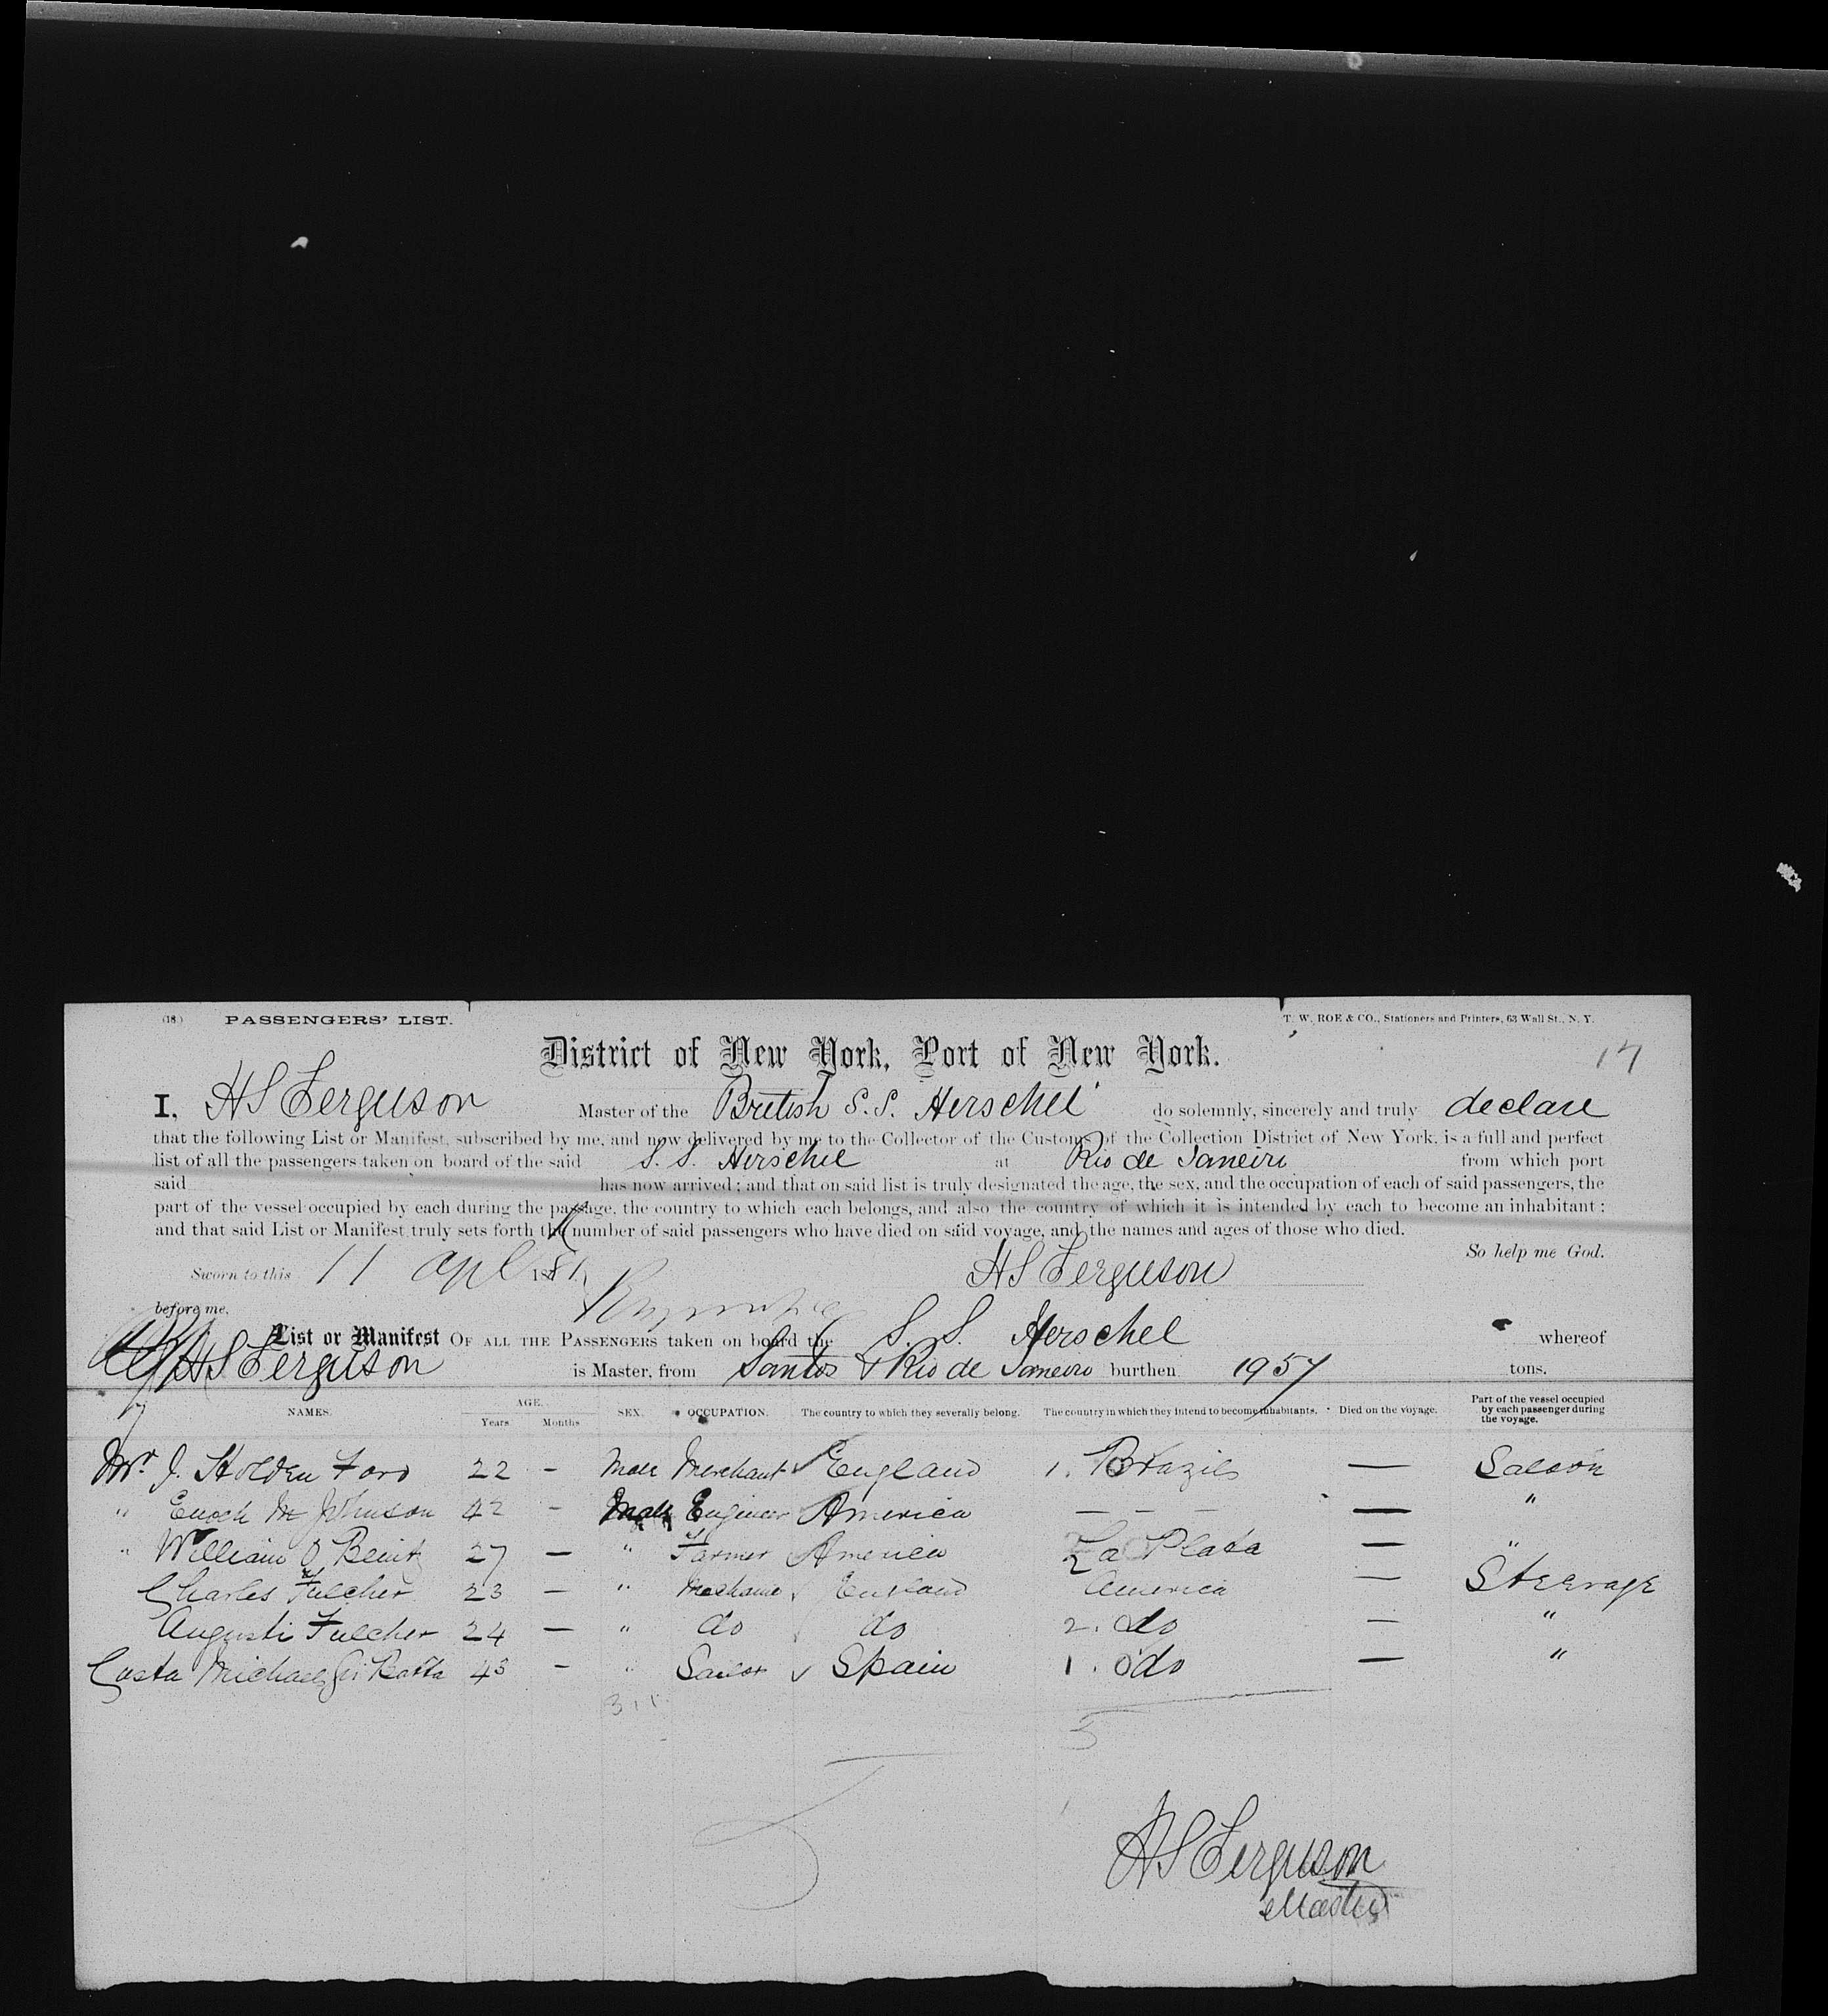 (18.) PASSENGERS' LIST. T. W. ROE & CO., Stationers and Printers, 63 Wall St., N. Y.
District of New York, Port of New York. 17
I, HS Ferguson Master of the British S.S. Herschel do solemnly, sincerely and truly declare
that the following List or Manifest, subscribed by me, and now delivered by me to the Collector of the Customs of the Collection District of New York, is a full and perfect
list of all the passengers taken on board of the said S. S. Herschel at Rio de Janeiro from which port
said has now arrived; and that on said list is truly designated the age, the sex, and the occupation of each of said passengers, the
part of the vessel occupied by each during the passage, the country to which each belongs, and also the country of which it is intended by each to become an inhabitant;
and that said List or Manifest truly sets forth the number of said passengers who have died on said voyage, and the names and ages of those who died.
So help me God.
Sworn to this 11 Apl 1881 HS Ferguson
before me,
List or Manifest OF ALL THE PASSENGERS taken on board the S. S. Herschel whereof
HS Ferguson is Master, from Santos & Rio de Janeiro burthen 1957 tons.
NAMES. AGE. Years Months SEX. OCCUPATION. The country to which they severally belong. The country in which they intend to become inhabitants. Died on the voyage. Part of the vessel occupied by each passenger during the voyage.
Mr. J. Holden Ford 22 - Male Merchant England 1. Brazils — Saloon
" Enoch M Johnson 42 - Male Engineer America — — — — "
" William O 27 — " Farmer America La Plata — "
Charles Fulcher 23 — " Mechanic England America — Steerage
Augusti Fulcher 24 — " do do 2. do — "
Costa Michael 43 - " Sailor Spain 1. do — "
5
HS Ferguson
Master